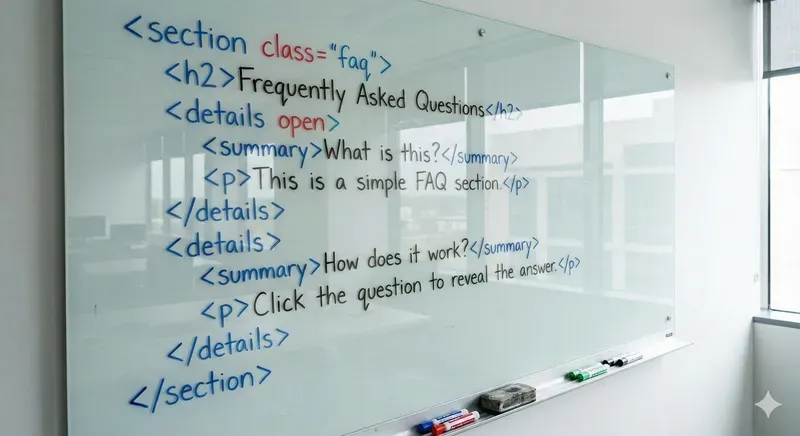 <section class="faq">
<h2>Frequently Asked Questions</h2>
<details open>
<summary>What is this?</summary>
<p>This is a simple FAQ section.</p>
</details>
<details>
<summary>How does it work?</summary>
<p>Click the question to reveal the answer.</p>
</details>
</section>